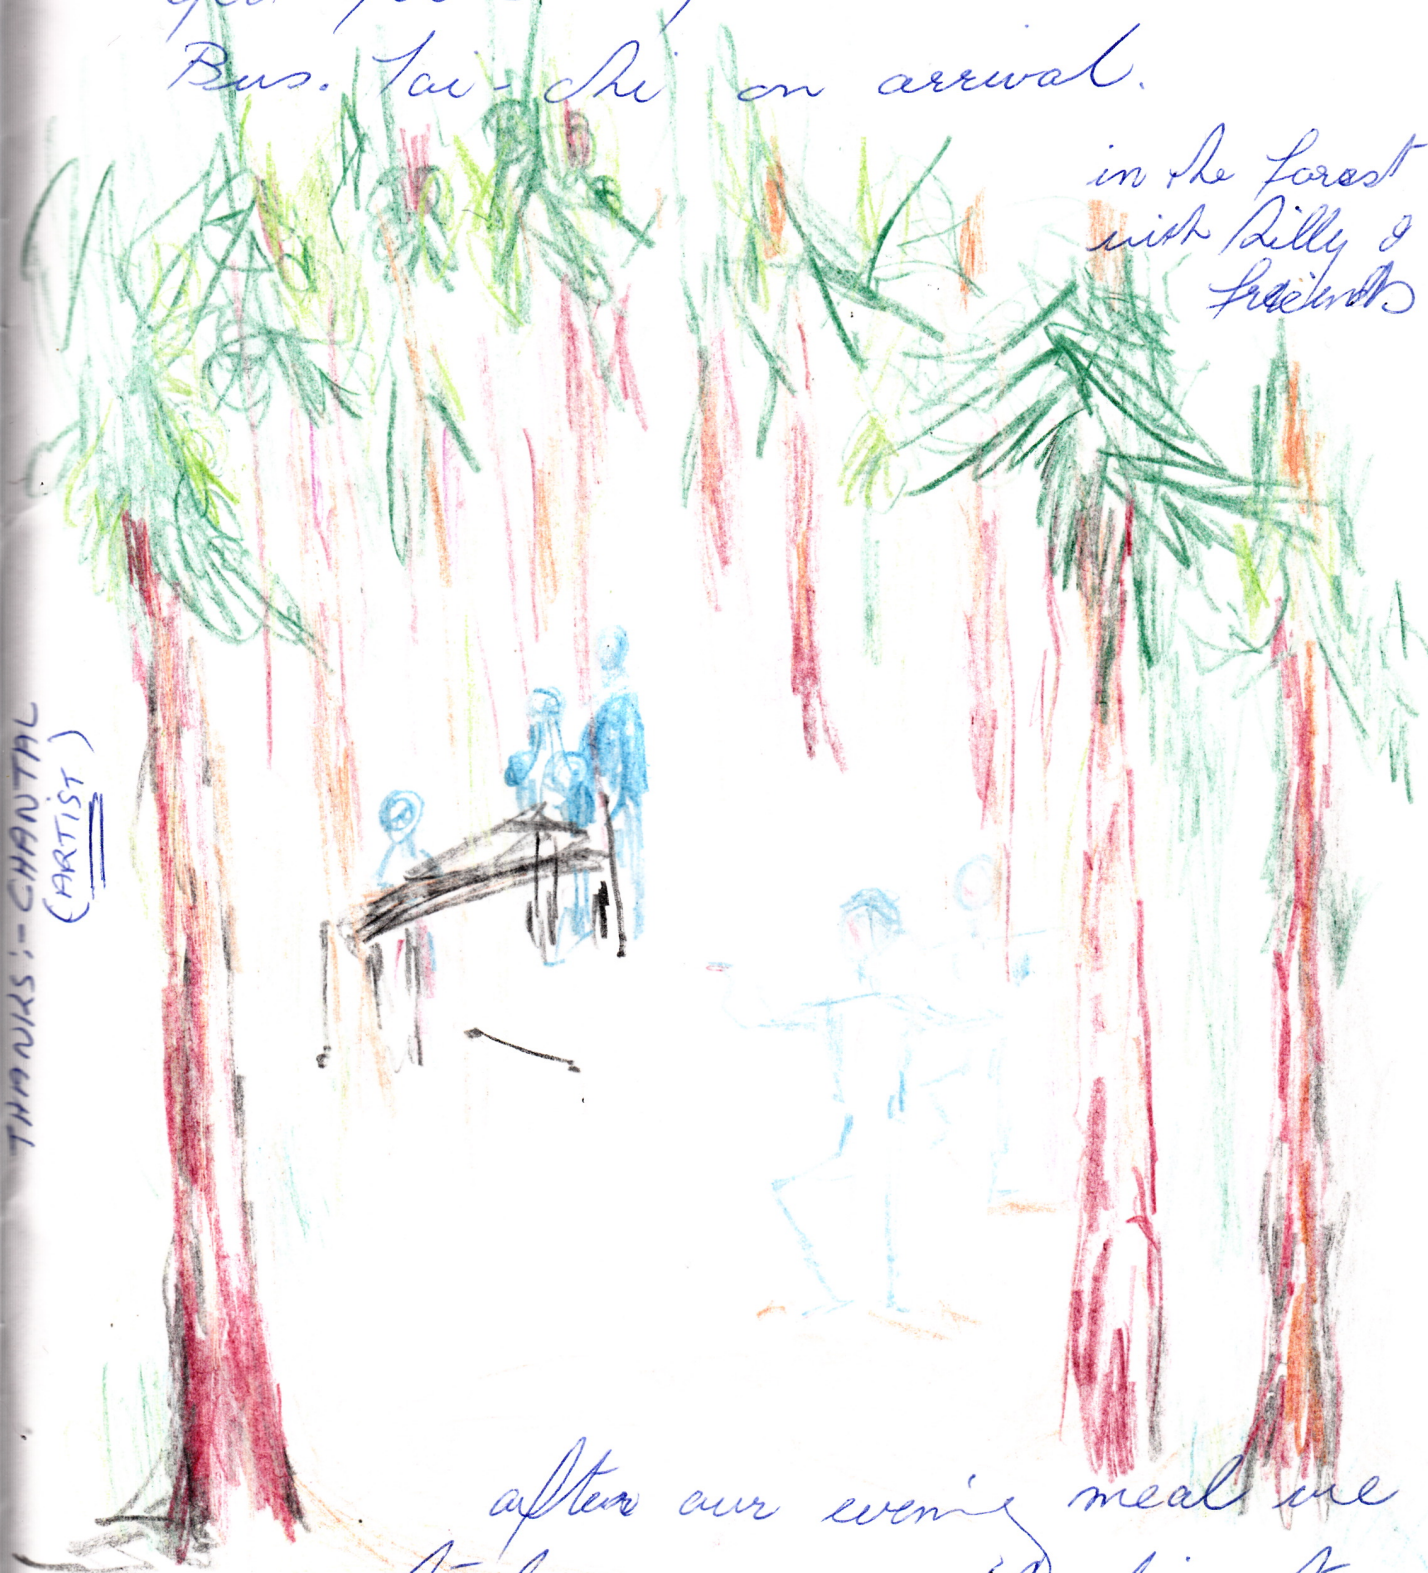 Bus. Tai-chi on arrival.
in the forest
with Lilly &
friends
THANKS:- CHANTAL
(ARTIST)
after our evening meal we